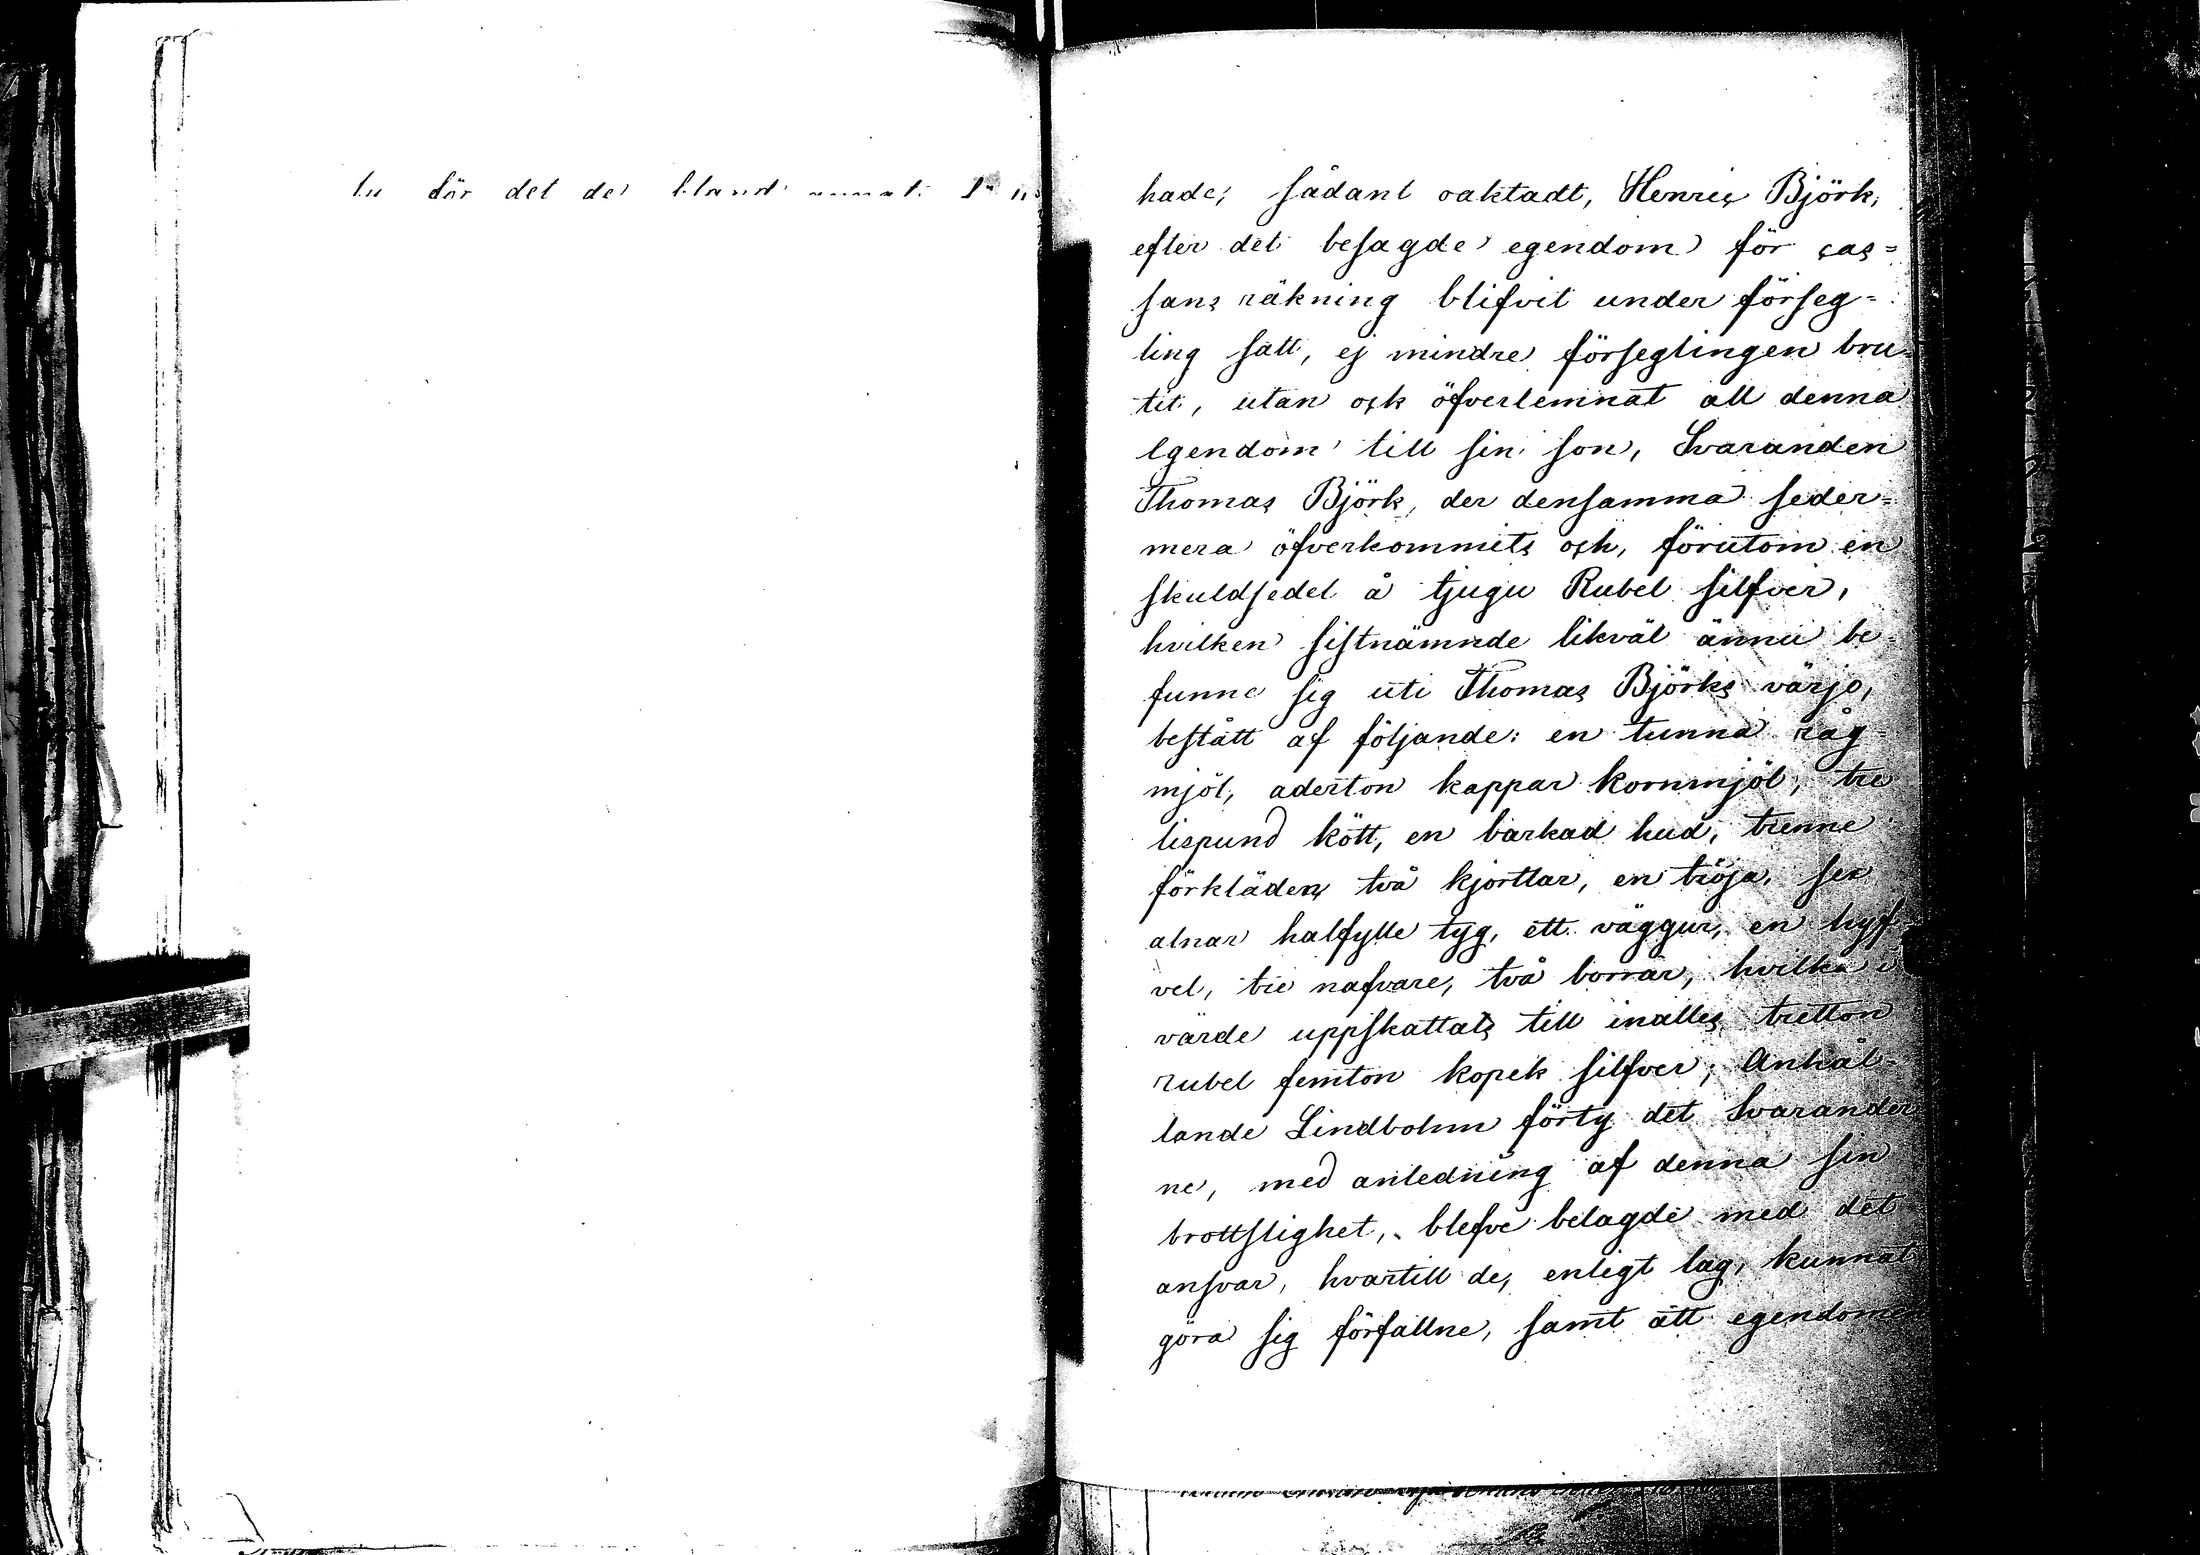 för det de bland annat
hade; sådant oaktadt, Henric Björk,
efter det besagde egendom för cas=
sans räkning blifvit under förseg=
ling satt, ej mindre förseglingen bru=
tit, utan ock öfverlemnat all denna
egendom till sin son, Svaranden
Thomas Björk, der densamma seder=
mera öfverkommits och, förutom en
skuldsedel å tjugu Rubel silfver,
hvilken sistnämnde likväl ännu be=
funne sig uti Thomas Björks värjo,
bestått af följande: en tunna råg=
mjöl, aderton kappar kornmjöl, tre
lispund kött, en barkad hud, trenne
förkläden, två kjortlar, en tröja, sex
alnar halfylle tyg, ett väggur, en hyf=
vel, tre nafvare, två borrar, hvilka i
värde uppskattats till inalles tretton
rubel femton kopek silfver; Anhål=
lande Lindbohm förty det Svarander
ne, med anledning af denna sin
brottslighet, blefve belagde med det
ansvar, hvartill de, enligt lag, kunnat
göra sig förfallne, samt att egendomen